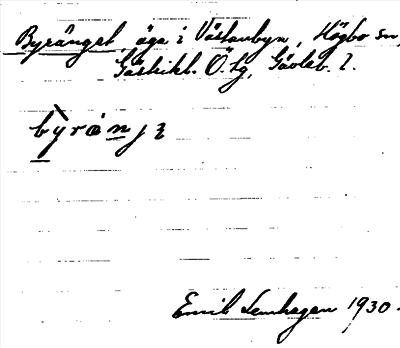 Byränget, äga i Västanbyn, Högbo sn,
Gästrikl. Ö. tg, Gävleb. l.
Emil Lenhagen 1930.